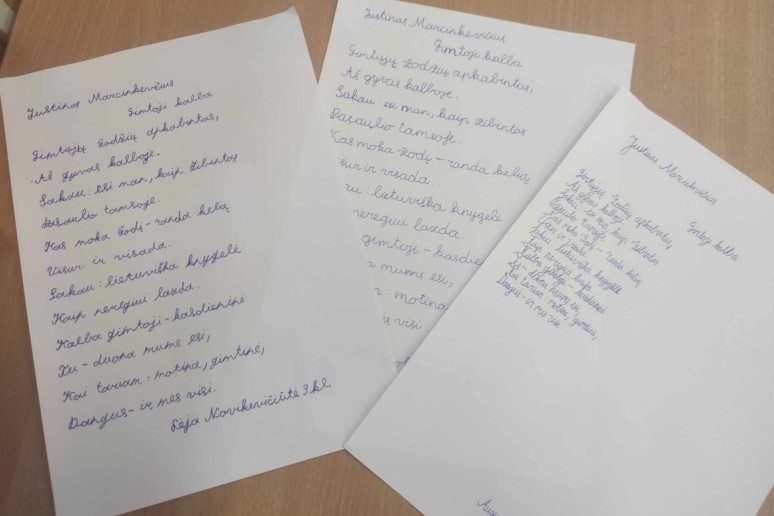 Justinas Marcinkevičius
Gimtoji kalba
Gimtųjų žodžių apkabintas,
Aš gyvas kalboje.
Sakau: esi man, kaip žibintas
Pasaulio tamsoje.
Kas moka žodį - randa kelią
Visur ir visada.
Sakau: lietuviška knygelė
Kaip neregiui lazda.
Kalba gimtoji - kasdieninė
Tu - duona mums esi,
Kai tariam: motina, gimtinė,
Dangus - ir mes visi.
Lėja Novikevičiūtė 3 kl
Justinas Marcinkevičius
Gimtoji kalba
Gimtųjų žodžių apkabintas,
Aš gyvas kalboje.
Sakau: esi man, kaip žibintas
Pasaulio tamsoje.
Kas moka žodį - randa kelią
Visur ir visada.
lietuviška knygelė
neregiui lazda.
gimtoji - kasdie
mums esi,
: motina
visi
Justinas Marcinkevičius
Gimtoji kalba
Gimtųjų žodžių apkabintas,
Aš gyvas kalboje.
Sakau: esi man, kaip žibintas
Pasaulio tamsoje.
Kas moka žodį - randa kelią
Visur ir visada.
Sakau: lietuviška knygelė
Kaip neregiui lazda.
Kalba gimtoji - kasdieninė
Tu - duona mums esi,
Kai tariam: motina, gimtinė,
Dangus - ir mes visi.